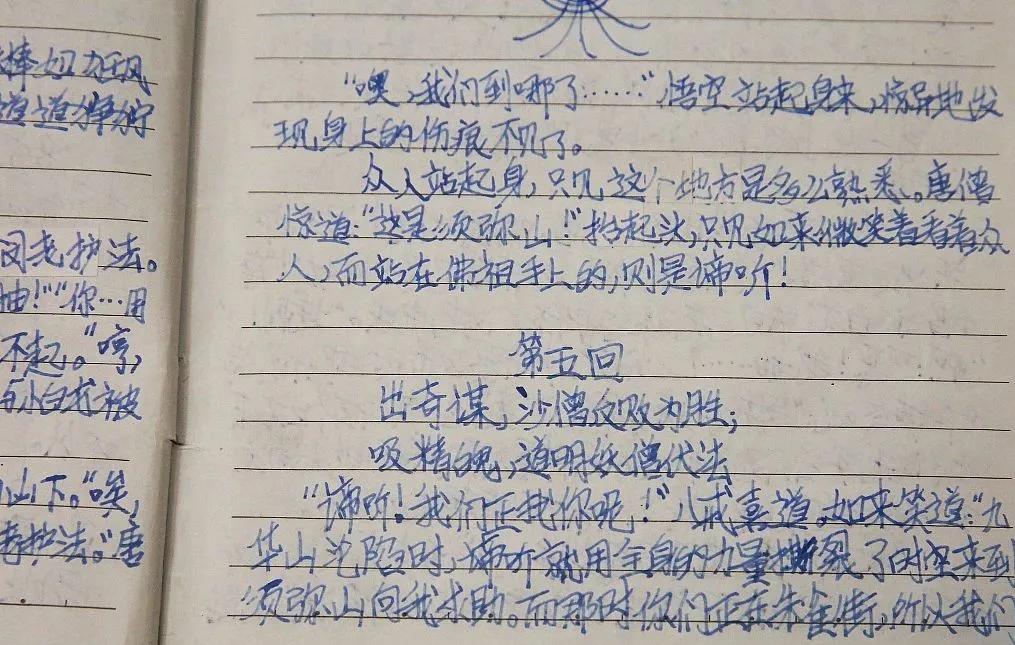 棒如狂风
道道狰狞
闵老护法。
抽!""你…用
不起。"哼,
与小白龙被
山下。"唉,
老护法。"唐
"噢,我们到哪了……"悟空站起身来,惊异地发
现身上的伤痕不见了。
众人站起身,只见这个地方是多么熟悉。唐僧
惊道:"这是须弥山!"抬起头,只见如来微笑着看着众
人,而站在佛祖手上的,则是谛听!
第五回
出奇谋,沙僧反败为胜;
吸精魄,道明妖僧伏法
"谛听!我们正找你呢!"八戒喜道。如来笑道:"九
华山沦陷时,谛听就用全身的力量撕裂了时空来到
须弥山向我求助。而那时你们正在朱雀街,所以我们